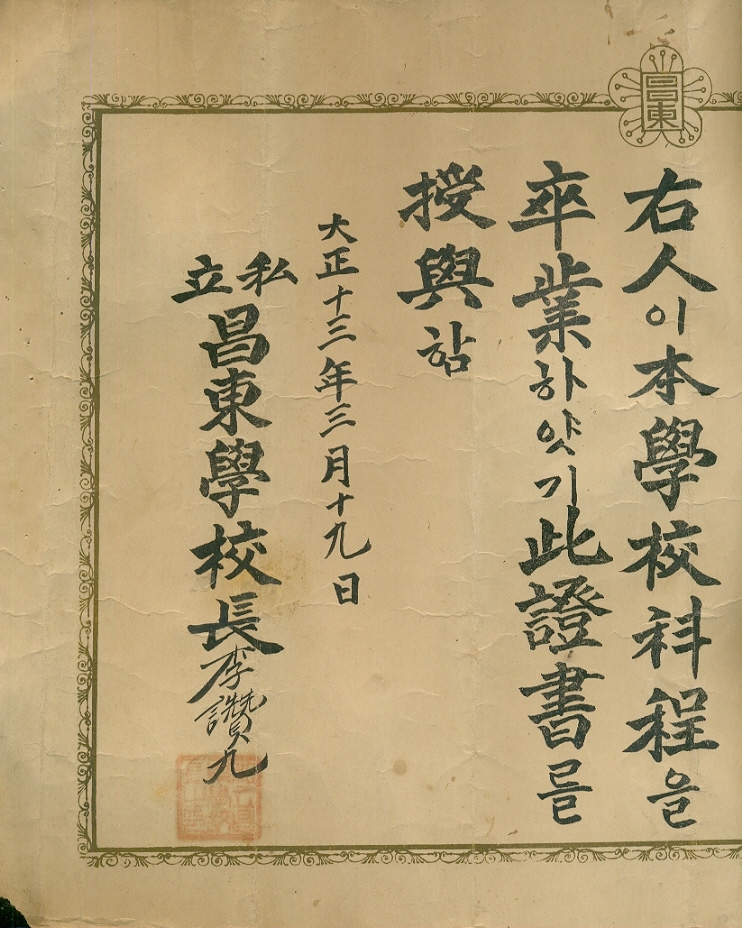 昌東
右人이本學校科程을
卒業하얏기此證書를
授與함
大正十三年三月十九日
私立昌東學校長李讚九